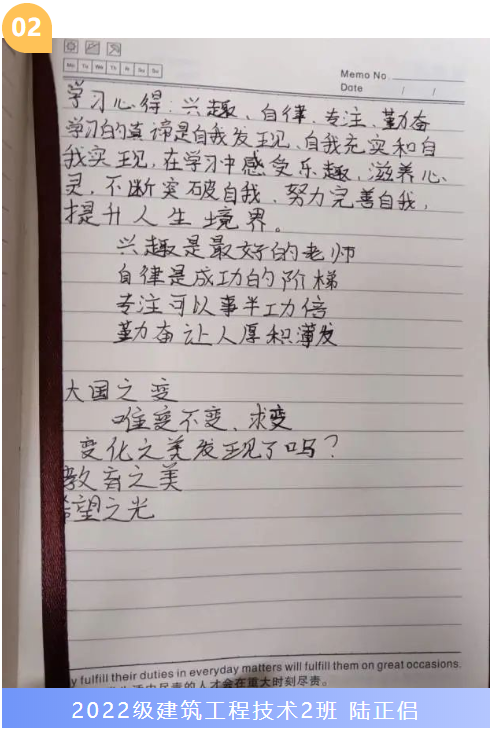 02
Mo Tu We Th Fr Sa Su
Memo No.
Date / /
学习心得：兴趣、自律、专注、勤奋
学习的真谛是自我发现、自我充实和自
我实现，在学习中感受乐趣、滋养心
灵，不断突破自我、努力完善自我，
提升人生境界。
兴趣是最好的老师
自律是成功的阶梯
专注可以事半功倍
勤奋让人厚积薄发
大国之变
唯变不变、求变
变化之美发现了吗？
教育之美
希望之光
y fulfill their duties in everyday matters will fulfill them on great occasions.
生活中尽责的人才会在重大时刻尽责。
2022级建筑工程技术2班 陆正侣